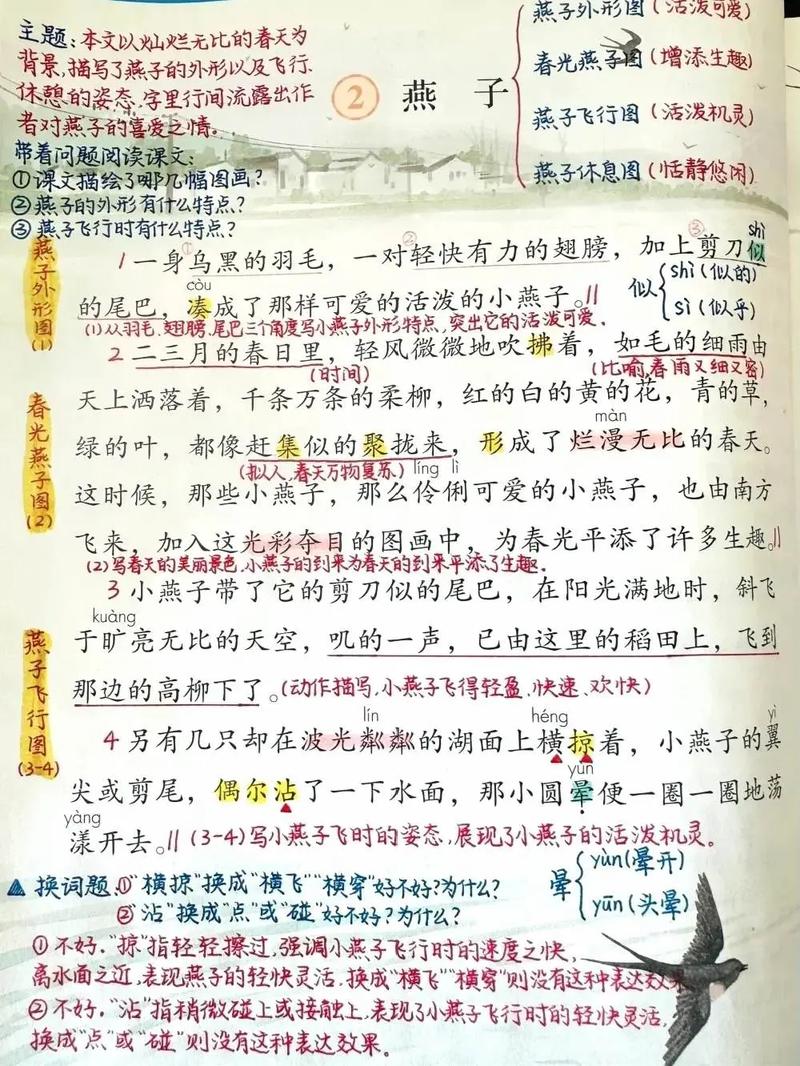 主题：本文以灿烂无比的春天为
背景，描写了燕子的外形以及飞行、
休憩的姿态，字里行间流露出作
者对燕子的喜爱之情。
带着问题阅读课文：
①课文描绘了哪几幅图画？
②燕子的外形有什么特点？
③燕子飞行时有什么特点？
2 燕子
燕子外形图（活泼可爱）
春光燕子图（增添生趣）
燕子飞行图（活泼机灵）
燕子休息图（恬静悠闲）
燕子外形图(1)
① ② ③ shì
1 一身乌黑的羽毛，一对轻快有力的翅膀，加上剪刀似
còu
的尾巴，凑成了那样可爱的活泼的小燕子。//
似 shì（似的） sì（似乎）
(1)从羽毛、翅膀、尾巴三个角度写小燕子外形特点，突出它的活泼可爱。
2 二三月的春日里，轻风微微地吹拂着，如毛的细雨由
(时间) (比喻，春雨又细又密)
春光燕子图(2)
天上洒落着，千条万条的柔柳，红的白的黄的花，青的草，
màn
绿的叶，都像赶集似的聚拢来，形成了烂漫无比的春天。
(拟人，春天万物复苏) líng lì
这时候，那些小燕子，那么伶俐可爱的小燕子，也由南方
飞来，加入这光彩夺目的图画中，为春光平添了许多生趣。//
(2)写春天的美丽景色，小燕子的到来为春天的到来平添了生趣。
3 小燕子带了它的剪刀似的尾巴，在阳光满地时，斜飞
kuàng
于旷亮无比的天空，叽的一声，已由这里的稻田上，飞到
燕子飞行图(3-4)
那边的高柳下了。(动作描写，小燕子飞得轻盈、快速、欢快)
lín héng yì
4 另有几只却在波光粼粼的湖面上横掠着，小燕子的翼
yùn
尖或剪尾，偶尔沾了一下水面，那小圆晕便一圈一圈地荡
yàng
漾开去。// (3-4)写小燕子飞时的姿态，展现了小燕子的活泼机灵。
换词题：①“横掠”换成“横飞”“横穿”好不好？为什么？
②“沾”换成“点”或“碰”好不好？为什么？
晕 yùn（晕开） yūn（头晕）
①不好。“掠”指轻轻擦过，强调小燕子飞行时的速度之快，
离水面之近，表现燕子的轻快灵活，换成“横飞”“横穿”则没有这种表达效果。
②不好。“沾”指稍微碰上或接触上，表现了小燕子飞行时的轻快灵活，
换成“点”或“碰”则没有这种表达效果。